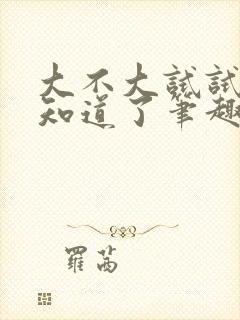 大不大試試
知道了筆趣
羅茜